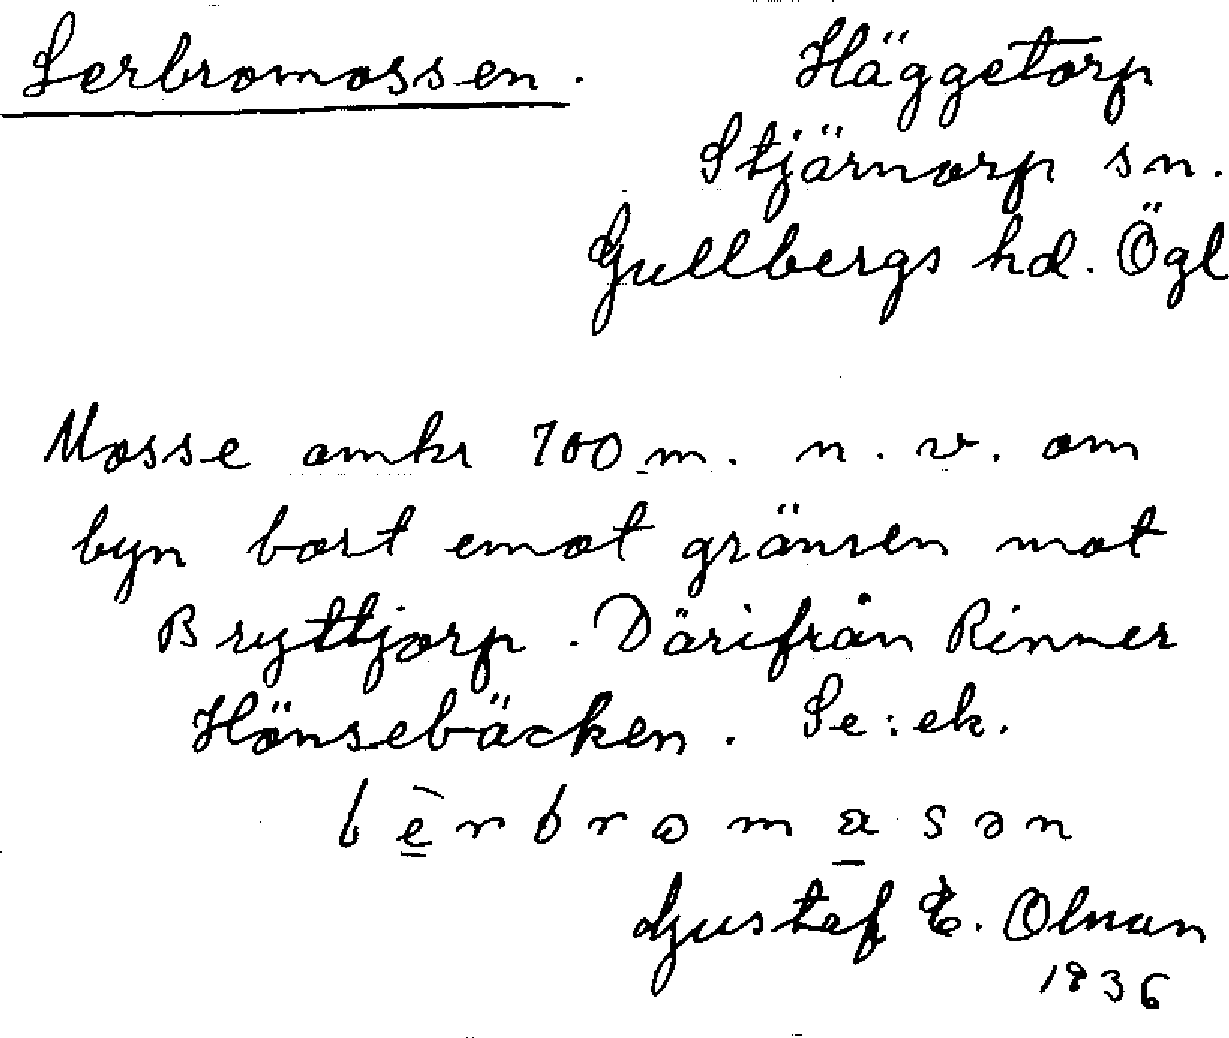 Lerbromossen.
Häggetorp
Stjärnorp sn.
Gullbergs hd. Ögl
Mosse omkr 700 m. n. v. om
byn bort emot gränsen mot
Bryttjorp. Därifrån Rinner
Hönsebäcken. Se: ek.
Gustaf E. Olman
1936